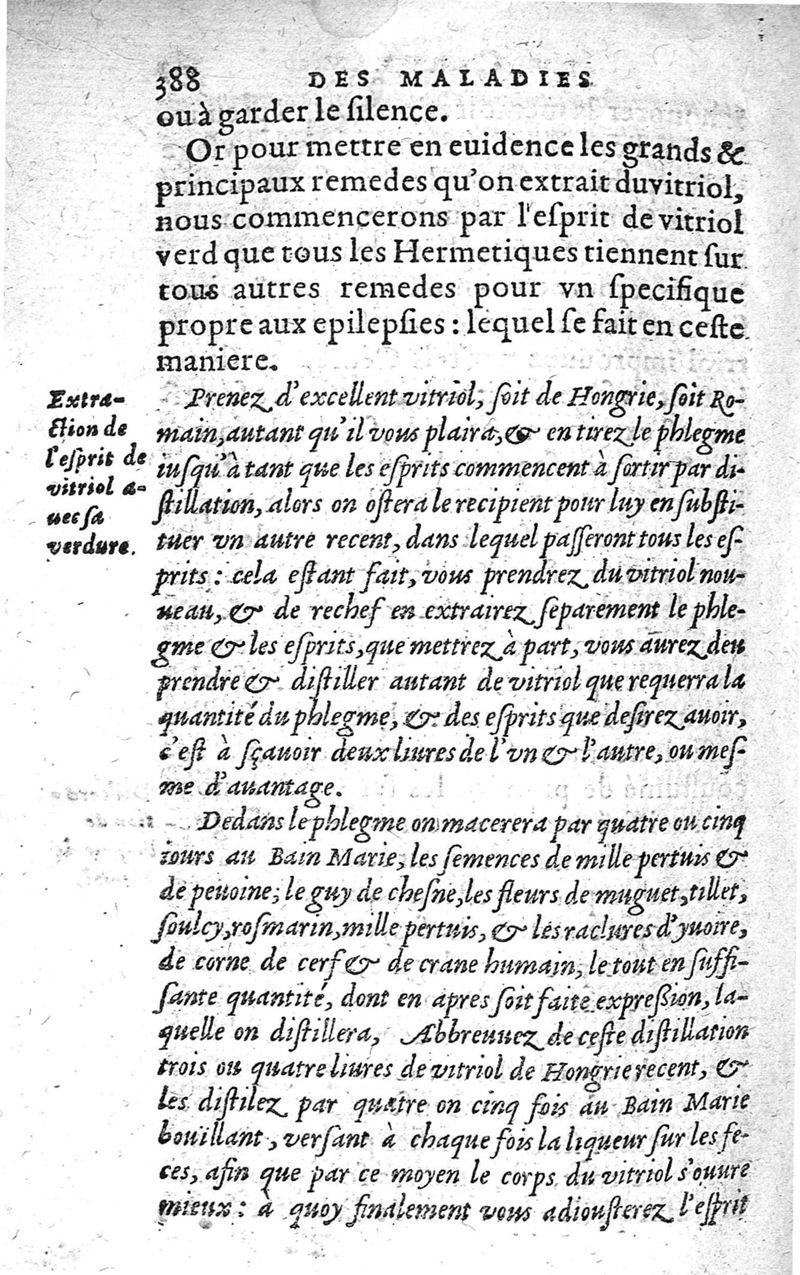 388 DES MALADIES
ou à garder le ſilence.
Or pour mettre en euidence les grands &
principaux remedes qu'on extrait du vitriol,
nous commencerons par l'eſprit de vitriol
verd que tous les Hermetiques tiennent ſur
tous autres remedes pour vn ſpecifique
propre aux epilepſies : lequel ſe fait en ceſte
maniere.
Extra-
ction de
l'eſprit de
vitriol a-
uec ſa
verdure.
Prenez d'excellent vitriol, ſoit de Hongrie, ſoit Ro-
main, autant qu'il vous plaira, & en tirez le phlegme
iuſqu'à tant que les eſprits commencent à ſortir par di-
ſtillation, alors on oſtera le recipient pour luy en ſubſti-
tuer vn autre recent, dans lequel paſſeront tous les eſ-
prits : cela eſtant fait, vous prendrez du vitriol nou-
ueau, & de rechef en extrairez ſeparement le phle-
gme & les eſprits, que mettrez à part, vous aurez deu
prendre & diſtiller autant de vitriol que requerra la
quantité du phlegme, & des eſprits que deſirez auoir,
c'eſt à sçauoir deux liures de l'vn & l'autre, ou meſ-
me d'auantage.
Dedans le phlegme on macerera par quatre ou cinq
iours au Bain Marie, les ſemences de mille pertuis &
de peuoine, le guy de cheſne, les fleurs de muguet, tillet,
ſoulcy, roſmarin, mille pertuis, & les raclures d'yuoire,
de corne de cerf & de crane humain, le tout en ſuffi-
ſante quantité, dont en apres ſoit faite expreßion, la-
quelle on diſtillera, Abbreuuez de ceſte diſtillation
trois ou quatre liures de vitriol de Hongrie recent, &
les diſtilez par quatre on cinq fois au Bain Marie
bouillant, verſant à chaque fois la liqueur ſur les fe-
ces, afin que par ce moyen le corps du vitriol s'ouure
mieux : à quoy finalement vous adiouſterez l'eſprit